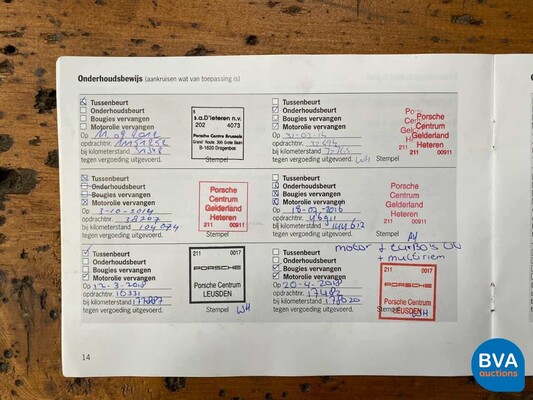 Onderhoudsbewijs (aankruisen wat van toepassing is)
Tussenbeurt
Onderhoudsbeurt
Bougies vervangen
Motorolie vervangen
Op 11.09.2012
opdrachtnr.
bij kilometerstand
tegen vergoeding uitgevoerd.
s.a.D'Ieteren n.v.
202 4073
Porsche Centre Brussels
B-1620 Drogenbos
Stempel
Tussenbeurt
Onderhoudsbeurt
Bougies vervangen
Motorolie vervangen
Op
opdrachtnr.
bij kilometerstand
tegen vergoeding uitgevoerd. WH
Porsche
Centrum
Gelderland
Heteren
211 00911
Stempel
Tussenbeurt
Onderhoudsbeurt
Bougies vervangen
Motorolie vervangen
Op 3-10-2014
opdrachtnr. 38207
bij kilometerstand 104074
tegen vergoeding uitgevoerd.
Porsche
Centrum
Gelderland
Heteren
211 00911
Stempel
Tussenbeurt
Onderhoudsbeurt
Bougies vervangen
Motorolie vervangen
Op 18-02-2016
opdrachtnr. 46911
bij kilometerstand 144612
tegen vergoeding uitgevoerd.
Porsche
Centrum
Gelderland
Heteren
211 00911
Stempel
motor + turbo's
+ multiriem
Tussenbeurt
Onderhoudsbeurt
Bougies vervangen
Motorolie vervangen
Op 12-3-2018
opdrachtnr. 10331
bij kilometerstand
tegen vergoeding uitgevoerd.
211 0017
PORSCHE
Porsche Centrum
LEUSDEN
Stempel WH
Tussenbeurt
Onderhoudsbeurt
Bougies vervangen
Motorolie vervangen
Op 20-4-2018
opdrachtnr. 17482
bij kilometerstand 178020
tegen vergoeding uitgevoerd.
211 0017
PORSCHE
Porsche Centrum
LEUSDEN
Stempel WH
14
BVA
auctions